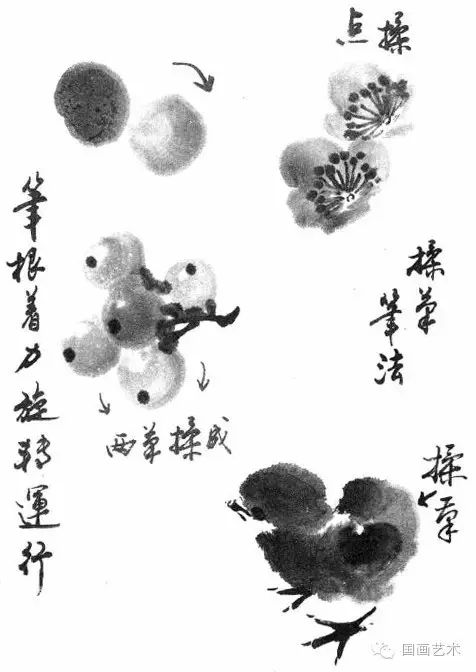 点揉
揉筆
筆法
筆根着力旋轉運行
两笔揉成
揉筆
国画艺术